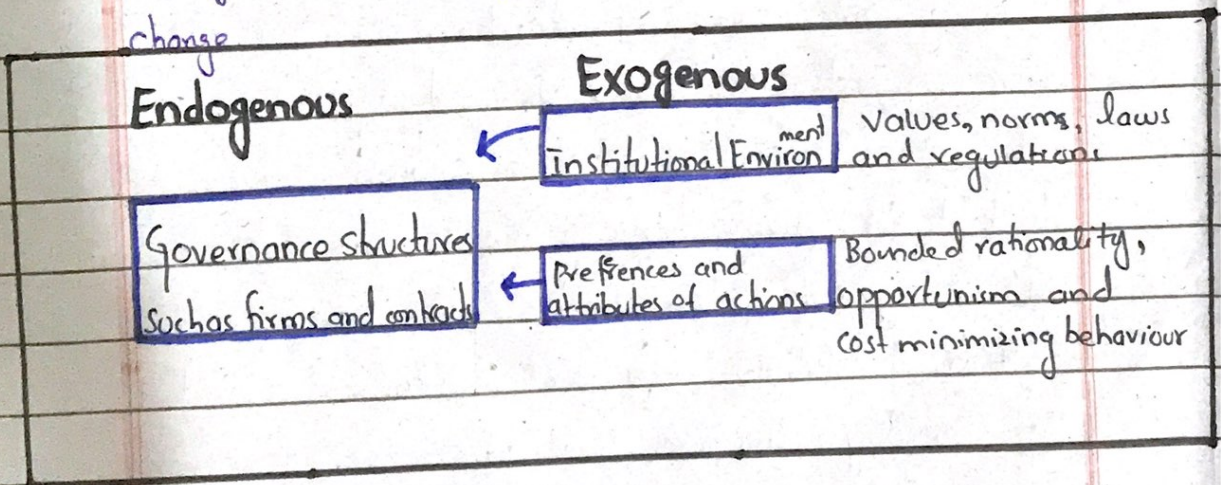 change
Endogenous
Exogenous
Institutional Environment
Values, norms, laws
and regulations
Governance structures
Such as firms and contracts
Prefrences and
attributes of actions
Bounded rationality,
opportunism and
cost minimizing behaviour